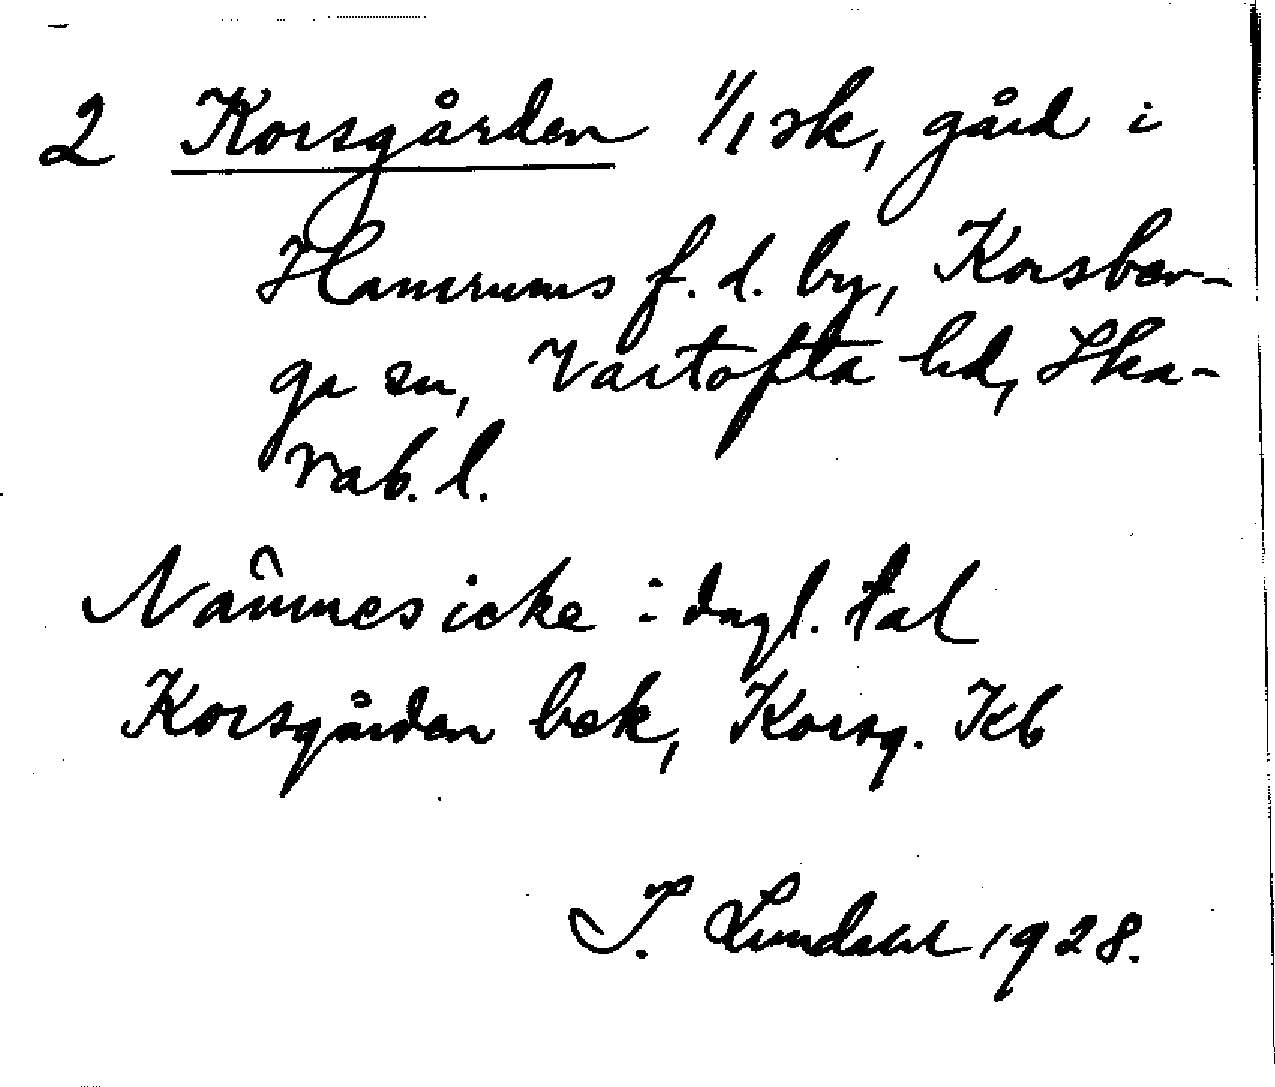 2 Korsgården 1/1 sk, gård i
Hamrums f. d. by, Korsber-
ga sn, Vartofta hd, Ska-
rab. l.
Nämnes icke i dagl. tal
Korsgården bek, Korsg. Kb
I. Lundahl 1928.